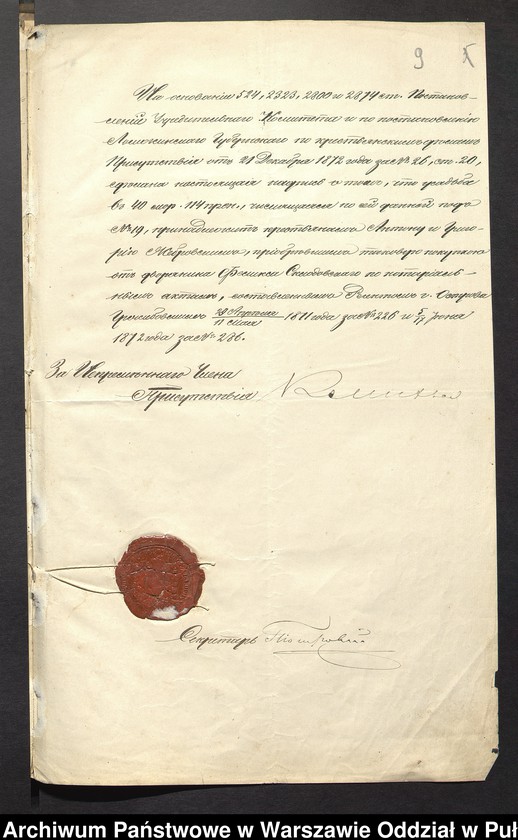 9
На основаніи 524, 2323, 2800 и 2874 ст. Постанов-
леній Учредительнаго Комитета и по постановленію
Ломжинскаго Губернскаго по крестьянскимъ дѣламъ
Присутствія отъ 21 Декабря 1872 года за № 26, ст. 20,
сдѣлана настоящая надпись о томъ, что усадьба
въ 40 мор. 114 прен., числящаяся по сей данной подъ
№ 19, принадлежитъ крестьянамъ Антону и Григо-
рію, пріобрѣвшимъ таковую покупкою
отъ дворянина Феликса по нотаріаль-
нымъ актамъ, составленнымъ г. Острова
29 Апрѣля
11 Мая
1871 года за № 226 и 5/17 Іюня
1872 года за № 286.
За Непремѣннаго Члена
Присутствія
Секретарь
Archiwum Państwowe w Warszawie Oddział w Puł